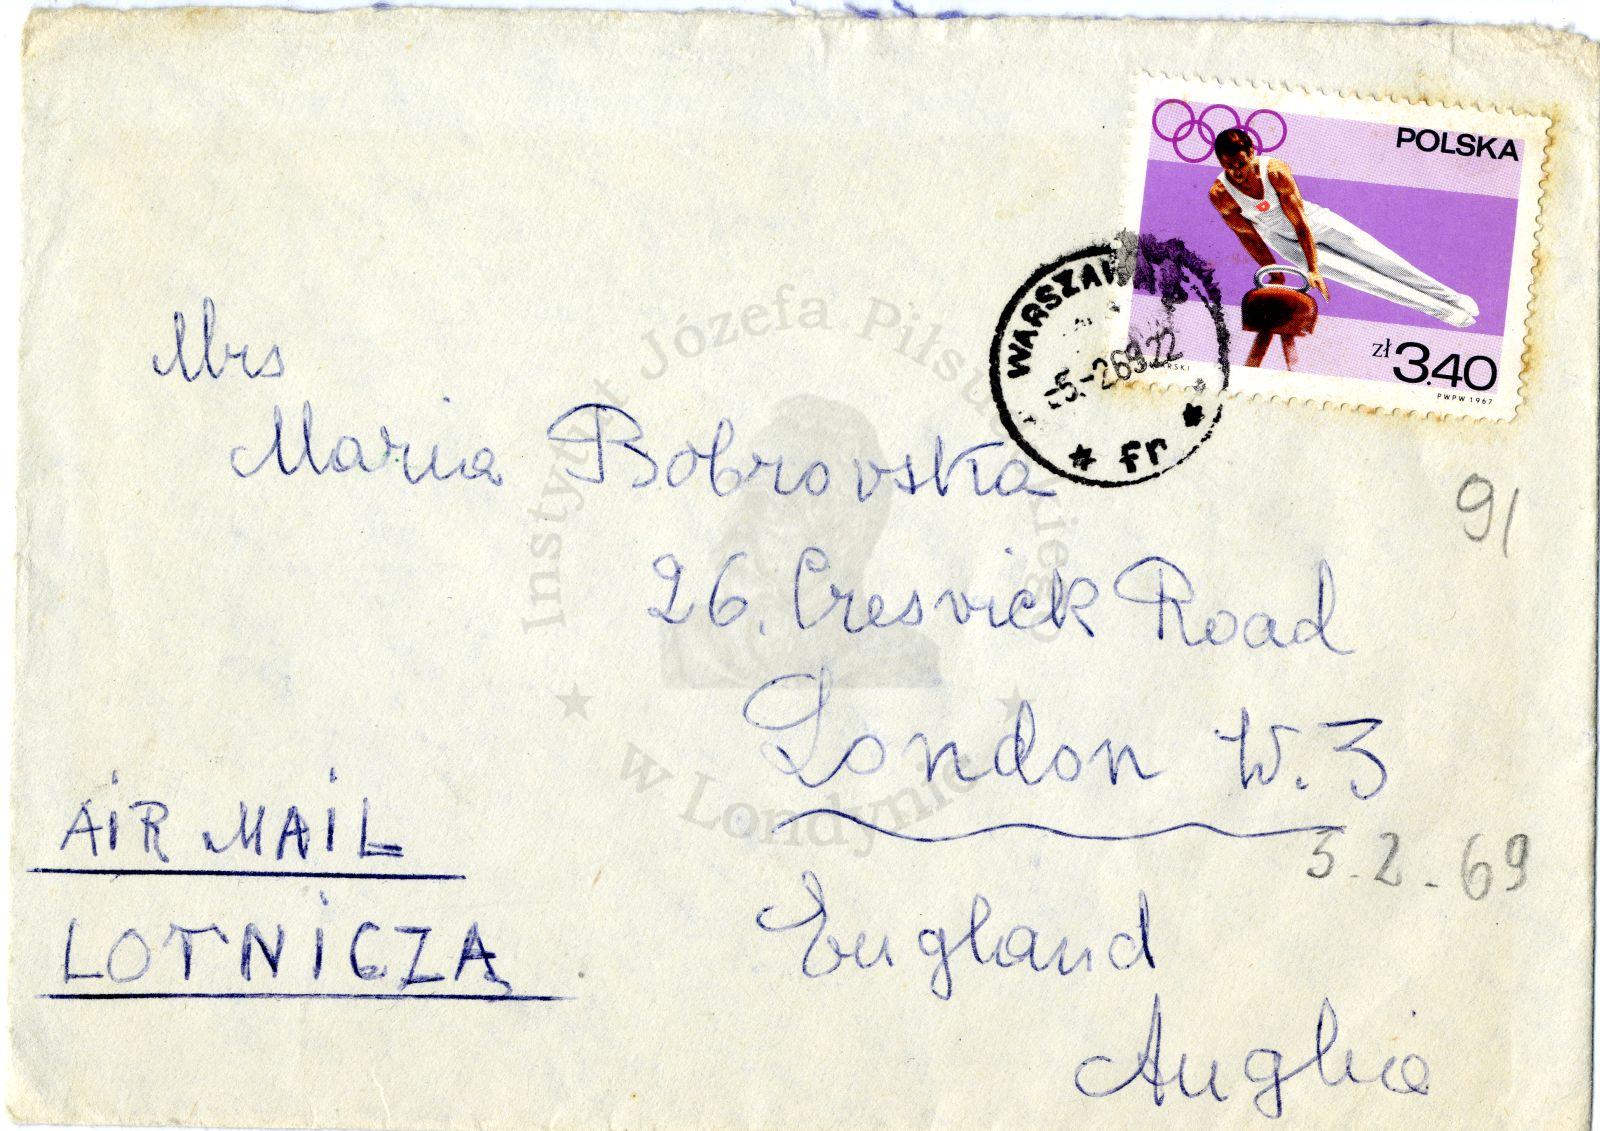 POLSKA
zł 3.40
PWPW 1967
WARSZAWA
-5.-2.69.22
* Fr *
Mrs
Maria Bobrovska
91
26. Cresvick Road
London W.3
3.2.69
AIR MAIL
LOTNICZA
England
Anglia
Instytut Józefa Piłsudskiego
w Londynie